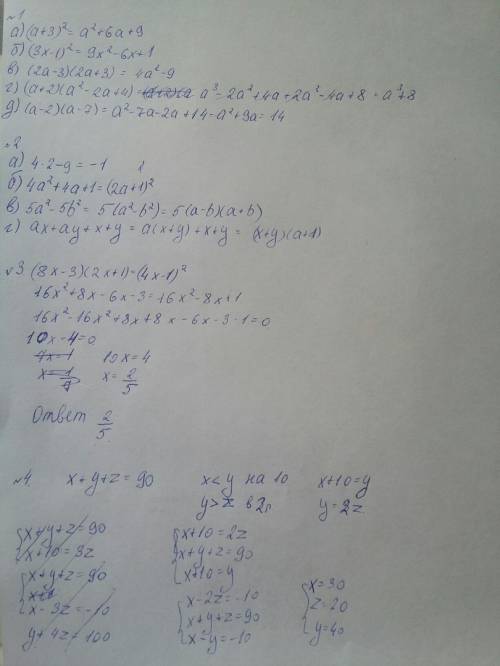 №1
а) (a+3)² = a²+6a+9
б) (3x-1)² = 9x²-6x+1
в) (2a-3)(2a+3) = 4a²-9
г) (a+2)(a²-2a+4) = a³-2a²+4a+2a²-4a+8 = a³+8
д) (a-2)(a-7) = a²-7a-2a+14 = a²+9a=14
№2
а) 4·2-9=-1
б) 4a²+4a+1=(2a+1)²
в) 5a²-5b²= 5(a²-b²)=5(a-b)(a+b)
г) ax+ay+x+y = a(x+y)+x+y = (x+y)(a+1)
№3 (8x-3)(2x+1)=(4x-1)²
16x²+8x-6x-3=16x²-8x+1
16x²-16x²+8x+8x-6x-3-1=0
10x-4=0
4x=1 10x=4
x=1/4 x=2/5
Ответ 2/5
№4. x+y+z=90 x<y на 10 x+10=y
y>z в 2р y=2z
x+y+z=90 x+10=2z
x+10=3z x+y+z=90
x+y+z=90 x+10=y
x-3z=-10 x-2z=-10 x=30
y+4z=100 x+y+z=90 z=20
x-y=-10 y=40